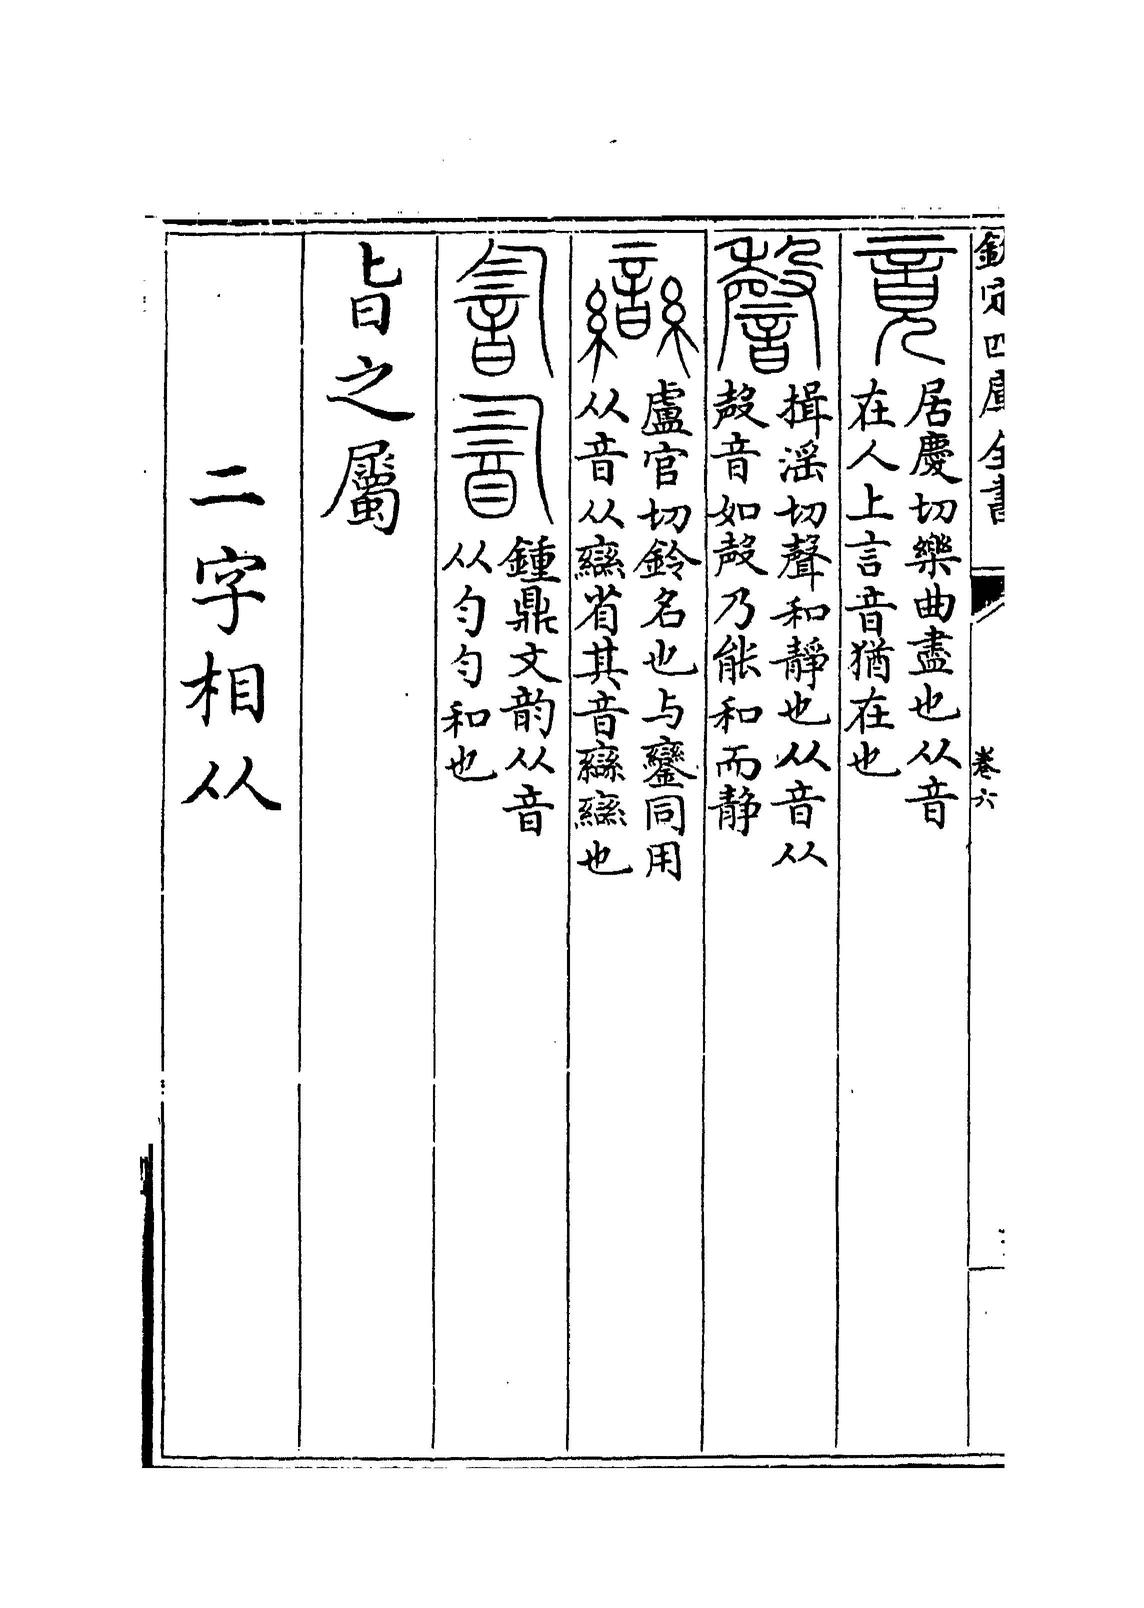 欽定四庫全書
卷六
竟
居慶切樂曲盡也从音
在人上言音猶在也
揖滛切聲和靜也从音从
殸音如殸乃能和而静
盧官切鈴名也与鑾同用
从音从䜌省其音䜌䜌也
鍾鼎文韵从音
从勻勻和也
㫖之屬
二字相从